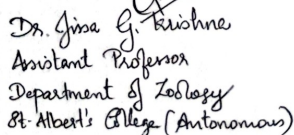 Dr. Jissa G. Krishna
Assistant Professor
Department of Zoology
St. Albert's College (Autonomous)